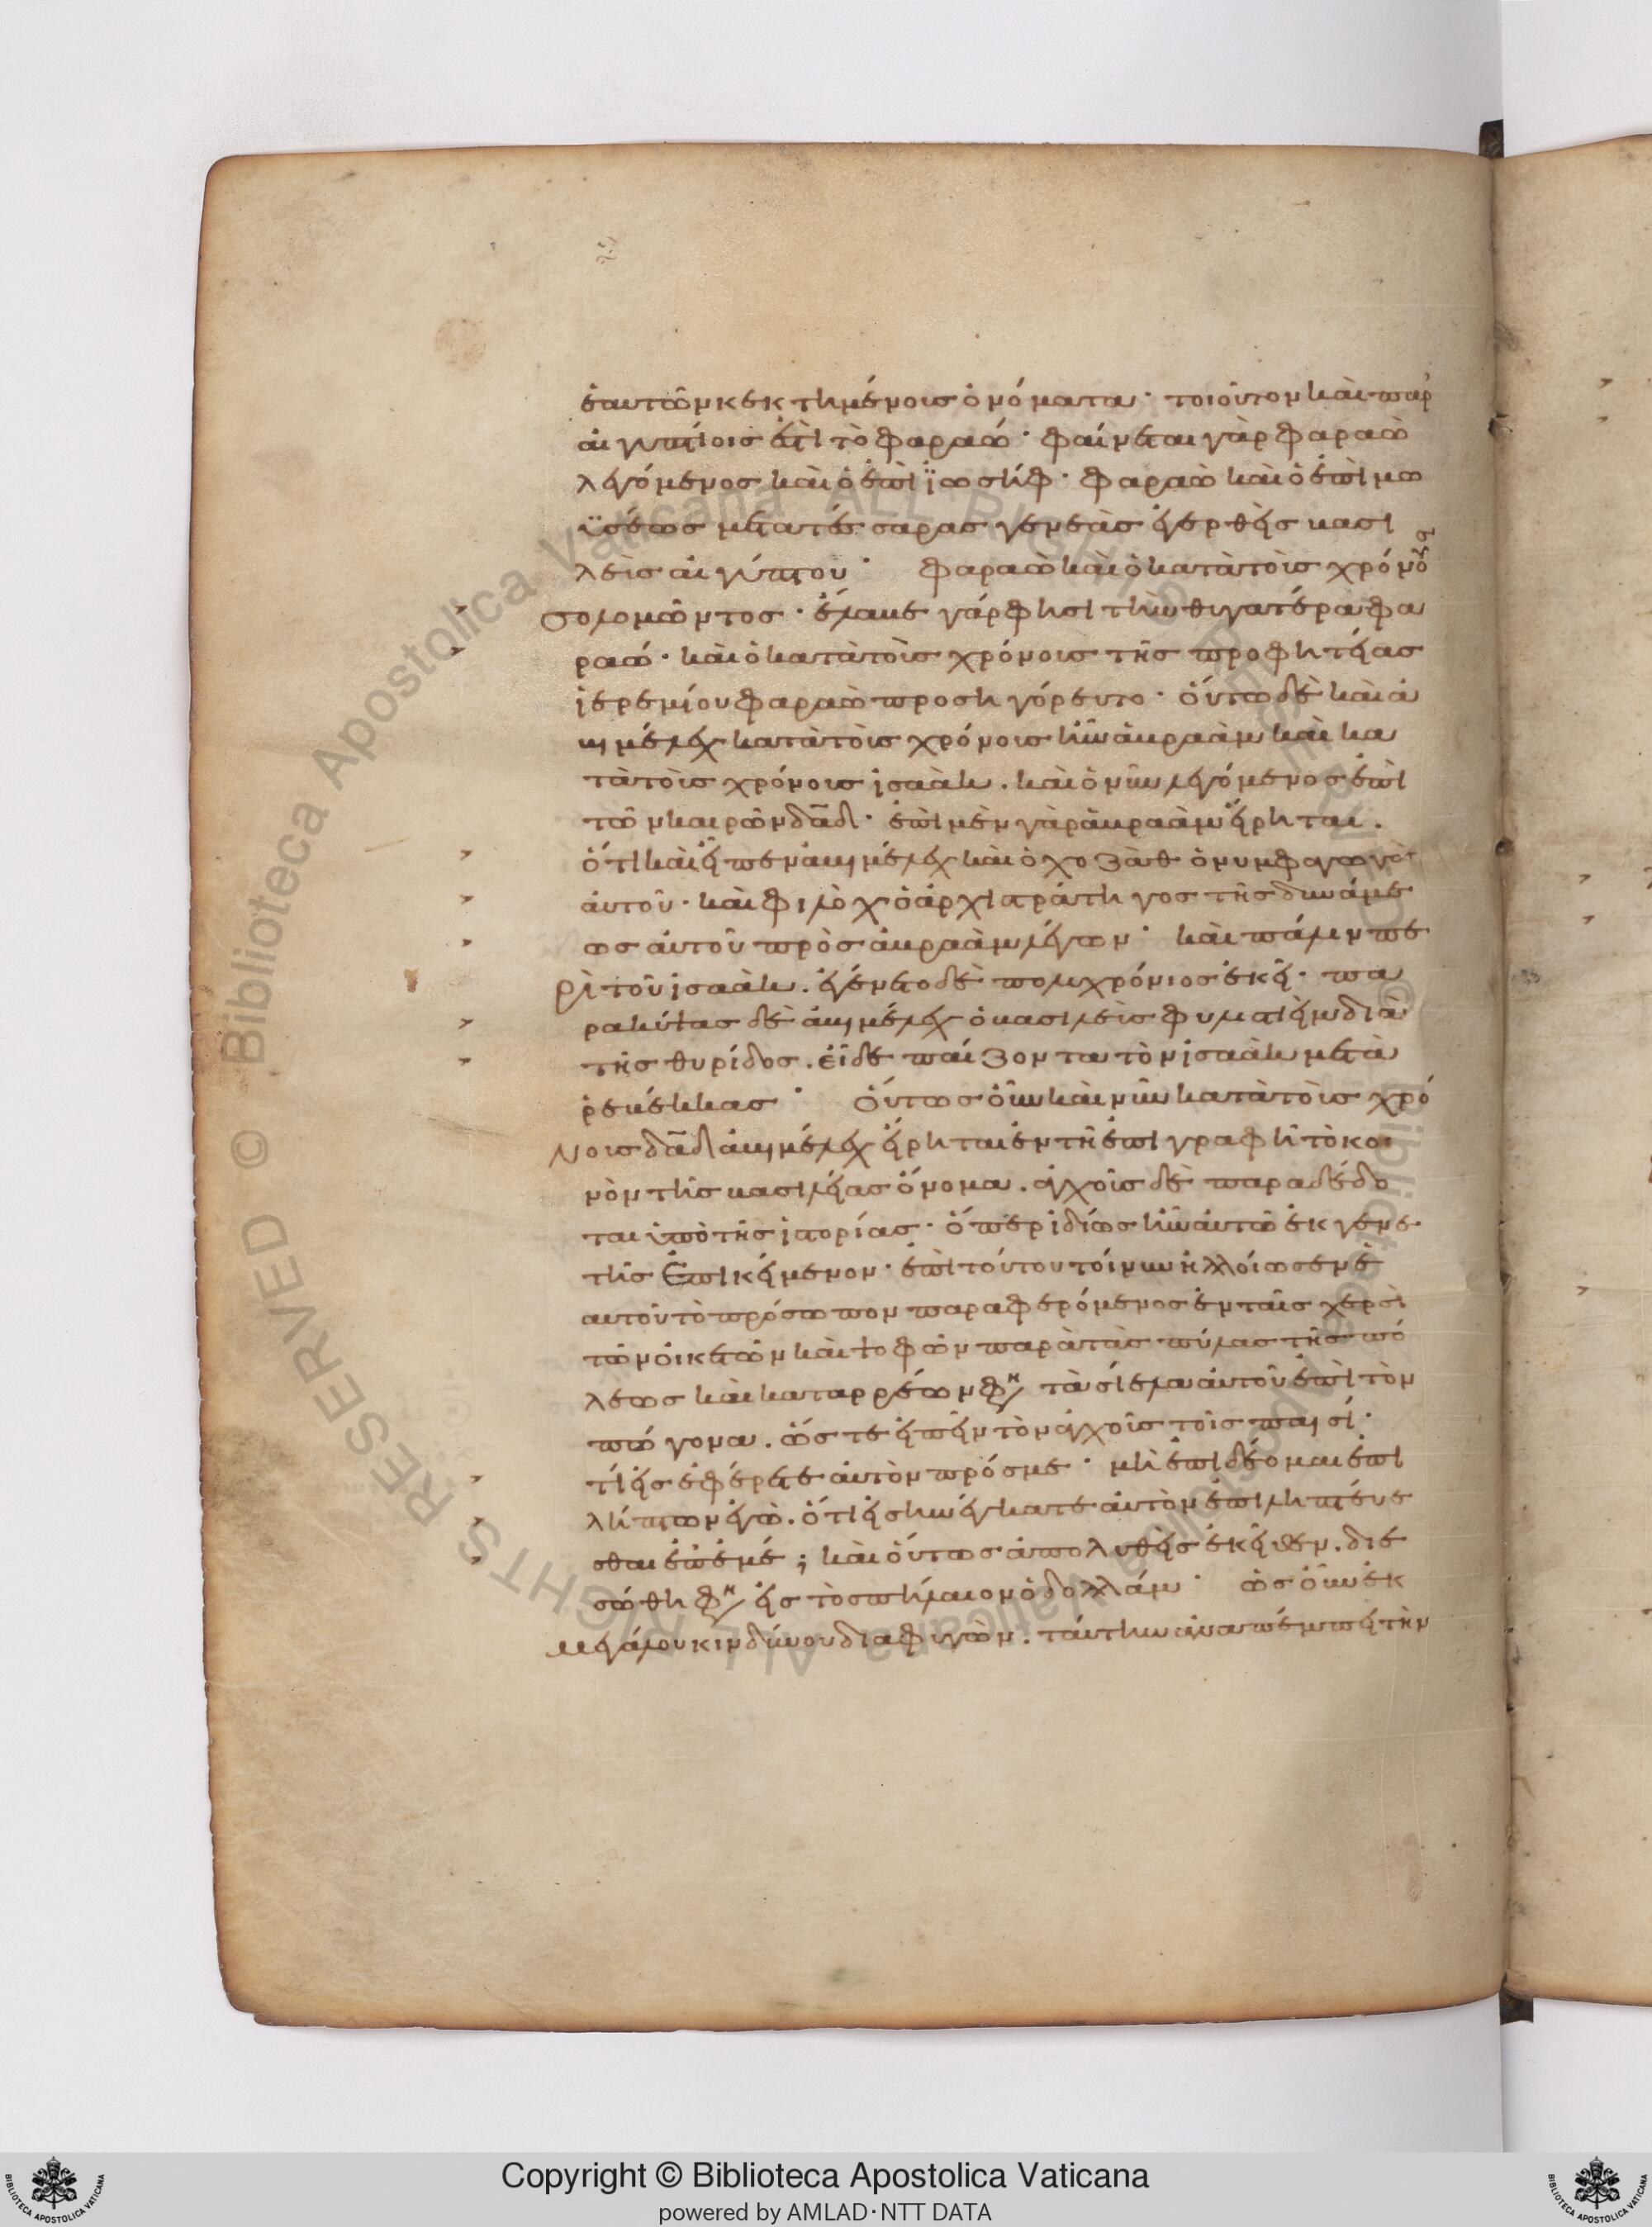 ἑαυτῶν κεκτημένοις ὀνόματα· τοιοῦτον καὶ παρ'
αἰγυπτίοις ἐστὶ τὸ φαραώ· φαίνεται γὰρ φαραὼ
λεγόμενος καὶ ὁ ἐπὶ ϊωσήφ· φαραὼ καὶ ὁ ἐπὶ μω
ϋσέως μετὰ τέσσαρας γενεὰς ἐγερθεὶς βασι
λεὺς αἰγύπτου· φαραὼ καὶ ὁ κατὰ τοὺς χρόνους
σολομῶντος· ἔλαβε γάρ φησι τὴν θυγατέρα φα
ραώ· καὶ ὁ κατὰ τοὺς χρόνους τῆς προφητείας
ἱερεμίου φαραὼ προσηγόρευτο· οὕτω δὲ καὶ ἀ
βιμέλεχ κατὰ τοὺς χρόνους ἦν ἀβραὰμ καὶ κα
τὰ τοὺς χρόνους ἰσαάκ. καὶ ὁ νῦν λεγόμενος ἐπὶ
τῶν καιρῶν δαδ· ἐπὶ μὲν γὰρ ἀβραὰμ εἴρηται.
ὅτι καὶ εἶπεν ἀβιμέλεχ καὶ ὀχοζὰθ ὁ νυμφαγωγὸς
αὐτοῦ· καὶ φιλὸχ ὁ ἀρχιστράτηγος τῆς δυνάμε
ως αὐτοῦ πρὸς ἀβραὰμ λέγων· καὶ πάλιν πε
ρὶ τοῦ ἰσαάκ. ἐγένετο δὲ πολυχρόνιος ἐκεῖ· πα
ρακύψας δὲ ἀβιμέλεχ ὁ βασιλεὺς φυλιστιεὶμ διὰ
τῆς θυρίδος. εἶδε παίζοντα τὸν ἰσαὰκ μετὰ
ῥεβέκκας· οὕτως οὖν καὶ νῦν κατὰ τοὺς χρό
νους δαδ ἀβιμέλεχ εἴρηται ἐν τῇ ἐπιγραφῇ τὸ κοι
νὸν τῆς βασιλείας ὄνομα. ἀγχοῦς δὲ παραδέδο
ται ὑπὸ τῆς ἱστορίας· ὅπερ ἰδίως ἦν αὐτῷ ἐκ γενε
τῆς ἐπικείμενον· ἐπὶ τούτου τοίνυν ἠλλοίωσεν ἑ
αυτοῦ τὸ πρόσωπον παραφερόμενος ἐν ταῖς χερσὶ
τῶν οἰκετῶν καὶ ψοφῶν παρὰ τὰς πύλας τῆς πό
λεως καὶ καταρρέων φη τὰ σίελα αὐτοῦ ἐπὶ τὸν
πώγονα. ὥστε εἰπεῖν τὸν ἀγχοῦς τοῖς παισί·
τί εἰσεφέρετε αὐτὸν πρός με· μὴ ἐπιδέομαι ἐπι
λήπτων ἐγώ. ὅτι εἰσηνέγκατε αὐτὸν ἐπιληπτεύε
σθαι ἐπ' ἐμέ; καὶ οὕτως ἀπολυθεὶς ἐκεῖθεν. διε
σώθη φη εἰς τὸ σπήλαιον ὀδολλάμ· ὡς οὖν ἐκ
μεγάλου κινδύνου διαφυγών. ταύτην ἀναπέμπει τὴν
Copyright © Biblioteca Apostolica Vaticana
powered by AMLAD·NTT DATA